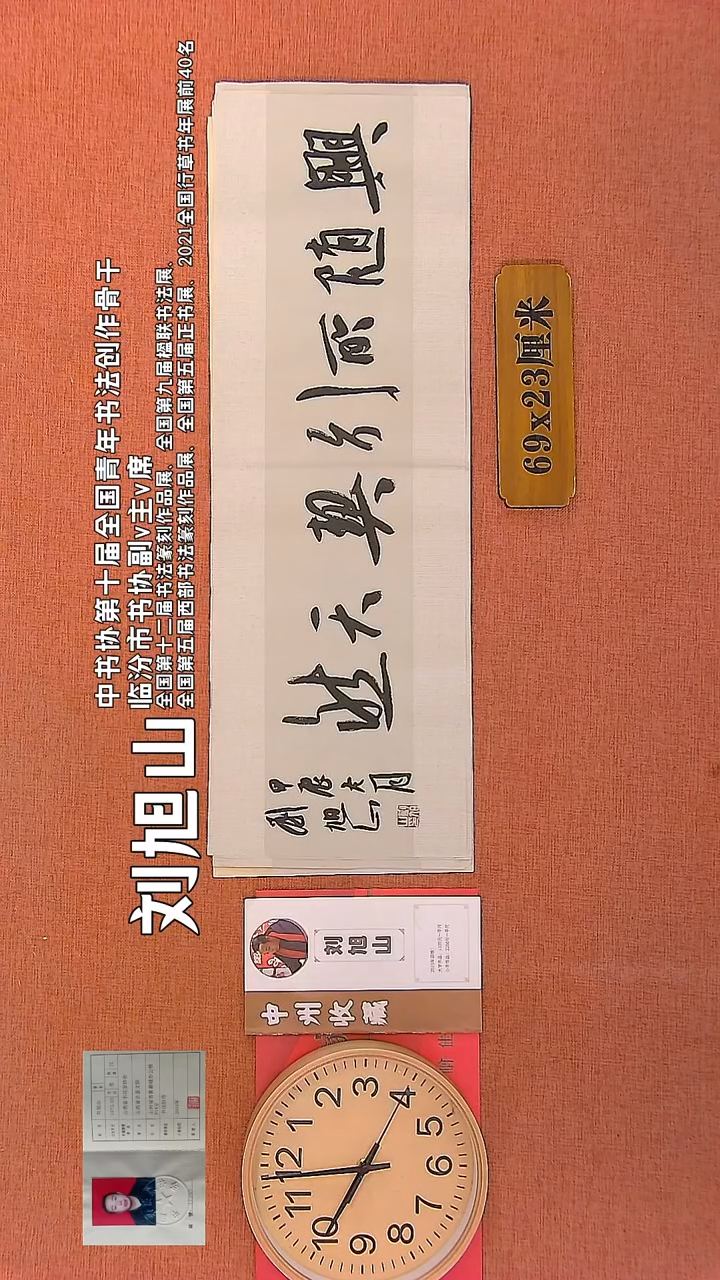 中书协第十届全国青年书法创作骨干
临汾市书协副v主v席
全国第十二届书法篆刻作品展、全国第九届楹联书法展、
全国第五届西部书法篆刻作品展、全国第五届正书展、2021全国行草书年展前40名
刘旭山
興随引契天然
甲辰大月
刘旭山
69x23厘米
刘旭山
中州收藏
12
1
2
3
4
5
6
7
8
9
10
11